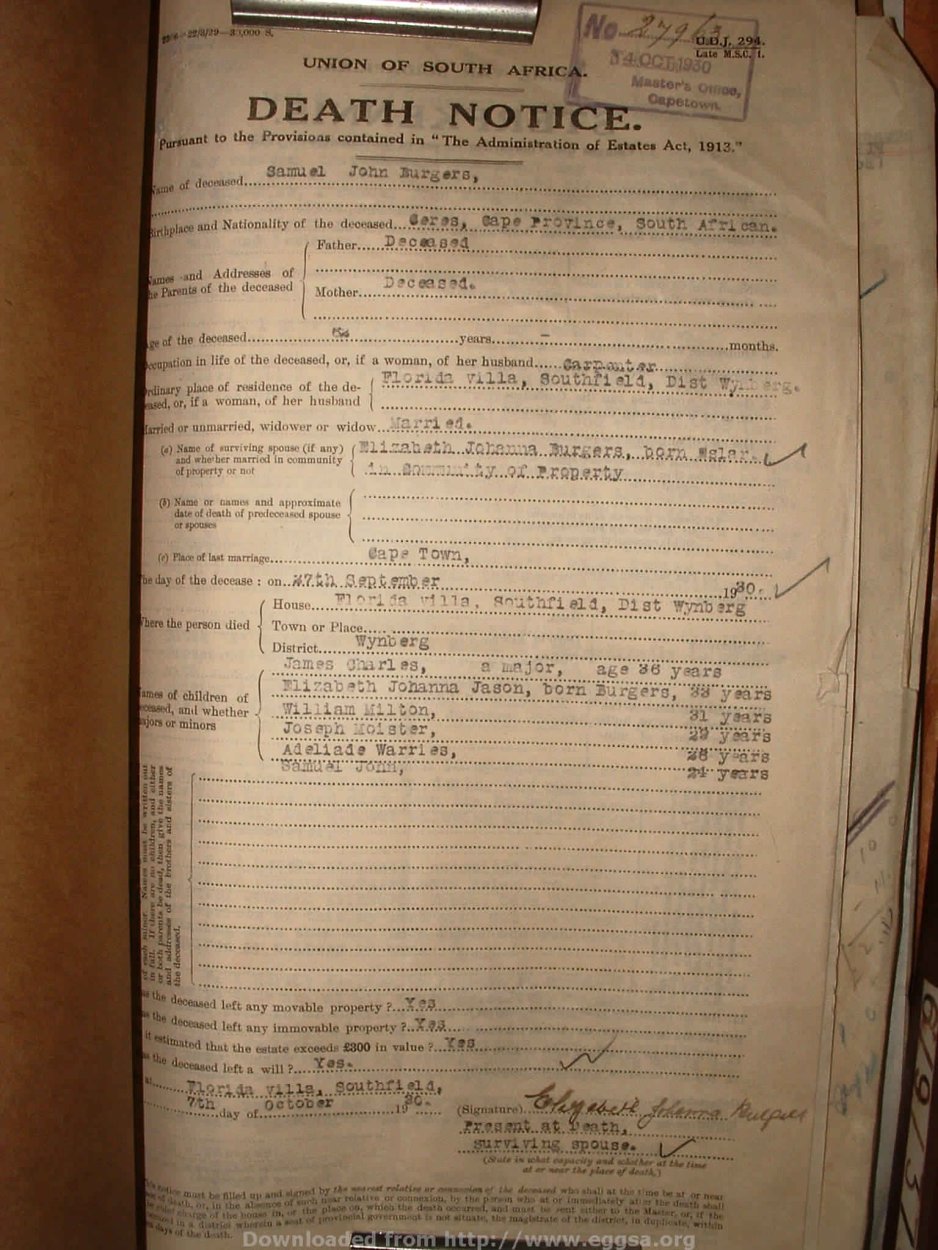 22/8/29—30,000 S.
No 27963
U.D.J. 294.
Late M.S.C. 1.
OCT 1930
Master's Office,
Capetown.
UNION OF SOUTH AFRICA.
DEATH NOTICE.
Pursuant to the Provisions contained in "The Administration of Estates Act, 1913."
Name of deceased Samuel John Burgers,
Birthplace and Nationality of the deceased Ceres, Cape Province, South African.
Names and Addresses of the Parents of the deceased
Father Deceased
Mother Deceased.
ge of the deceased years - months.
ccupation in life of the deceased, or, if a woman, of her husband Carpenter
rdinary place of residence of the de-
eased, or, if a woman, of her husband
Florida Villa, Southfield, Dist Wynberg.
arried or unmarried, widower or widow Married.
(a) Name of surviving spouse (if any)
and whether married in community
of property or not
Elizabeth Johanna Burgers, born
in Community of Property
(b) Name or names and approximate
date of death of predeceased spouse
or spouses
(c) Place of last marriage Cape Town,
he day of the decease : on 27th September 1930.
here the person died
House Florida villa, Southfield, Dist Wynberg
Town or Place
District Wynberg
ames of children of
eceased, and whether
ajors or minors
James Charles, a major, age 36 years
Elizabeth Johanna Jason, born Burgers, 33 years
William Milton, 31 years
Joseph Moister, 29 years
Adeliade Warries, 26 years
Samuel John, 24 years
of each minor. Names must be written out
in full. If there are no children, and either
or both parents be dead, then give the names
and addresses of the brothers and sisters of
the deceased.
as the deceased left any movable property ? Yes
as the deceased left any immovable property ? Yes
it estimated that the estate exceeds £300 in value ? Yes
as the deceased left a will ? Yes.
at Florida villa, Southfield,
7th day of October 19 30.
(Signature) Elizabeth Johanna Burgers
Present at Death,
surviving spouse.
(State in what capacity and whether at the time
at or near the place of death.)
notice must be filled up and signed by the nearest relative or connexion of the deceased who shall at the time be at or near
of death, or, in the absence of such near relative or connexion, by the person who at or immediately after the death shall
charge of the house in, or the place on, which the death occurred, and must be sent either to the Master, or, if the
in a district wherein a seat of provincial government is not situate, the magistrate of the district, in duplicate, within
days of the death.
Downloaded from http://www.eggsa.org